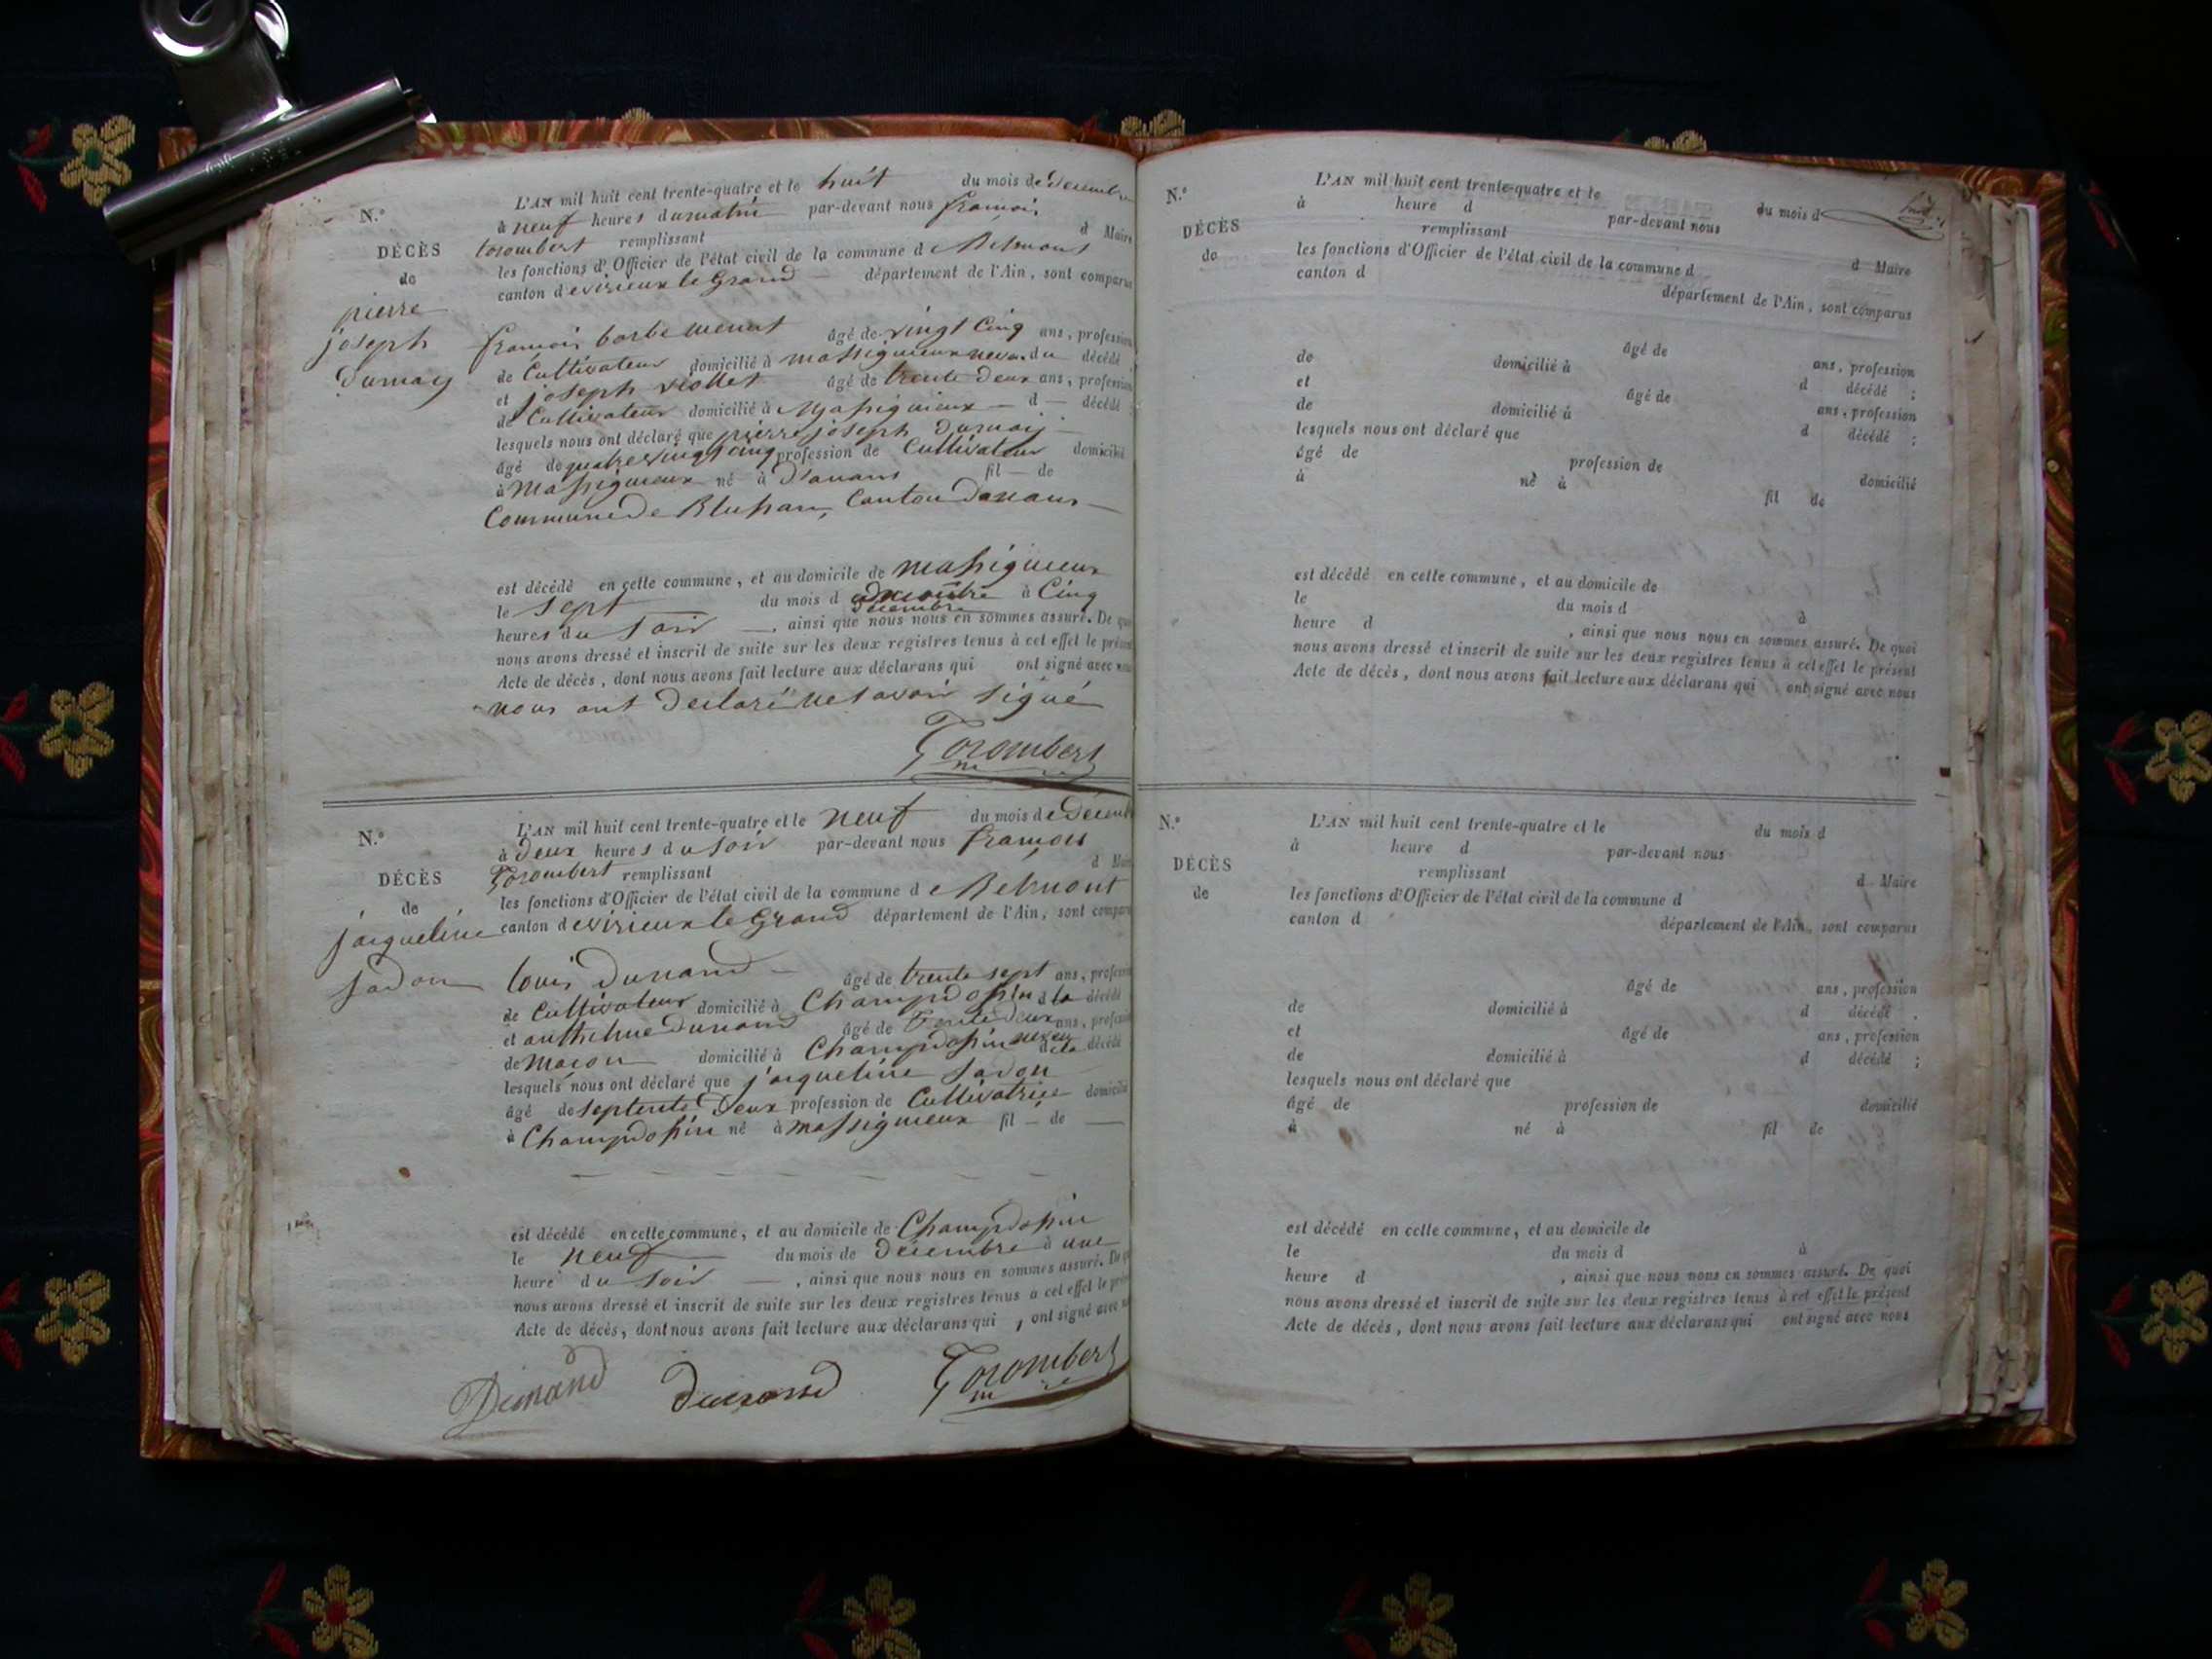 N.°
DÉCÈS
de
pierre
joseph
Dumay
L'AN mil huit cent trente-quatre et le huit du mois de Décembre
à neuf heures du matin par-devant nous françois
torombert remplissant d Maire
les fonctions d'Officier de l'état civil de la commune de Belmont
canton de virieux le Grand département de l'Ain, sont comparus
françois barbe âgé de vingt Cinq ans, profession
de Cultivateur domicilié à massignieux neveu du décédé
et joseph viollet âgé de trente deux ans, profession
de Cultivateur domicilié à Massignieux — d — décédé ;
lesquels nous ont déclaré que pierre joseph Dumay
âgé de quatre vingt cinq profession de Cultivateur domicilié
à Massignieux né à fil — de
Commune de Canton
est décédé en cette commune, et au domicile de massignieux
le sept du mois d décembre à Cinq
heures du soir —, ainsi que nous nous en sommes assuré. De quoi
nous avons dressé et inscrit de suite sur les deux registres tenus à cet effet le présent
Acte de décès, dont nous avons fait lecture aux déclarans qui ont signé avec nous
nous ont déclaré ne savoir signé
Torombert
N.°
DÉCÈS
de
jacqueline
sadon
L'AN mil huit cent trente-quatre et le neuf du mois de Décembre
à Deux heures du soir par-devant nous françois
Torombert remplissant d Maire
les fonctions d'Officier de l'état civil de la commune de Belmont
canton de virieux le Grand département de l'Ain, sont comparus
louis Dunand — âgé de trente sept ans, profession
de Cultivateur domicilié à Champdossin d la décédé
et anthelme dunand âgé de Trente Deux ans, profession
de Macon domicilié à Champdossin neveu de la décédé
lesquels nous ont déclaré que jacqueline sadon
âgé de septente Deux profession de Cultivatrice domicilié
à Champdossin né à massignieux fil — de —
est décédé en cette commune, et au domicile de Champdossin
le neuf du mois de Décembre à une
heure du soir —, ainsi que nous nous en sommes assuré. De quoi
nous avons dressé et inscrit de suite sur les deux registres tenus à cet effet le présent
Acte de décès, dont nous avons fait lecture aux déclarans qui, ont signé avec nous
Dunand dunand Torombert
N.°
DÉCÈS
de
L'AN mil huit cent trente-quatre et le du mois d
à heure d par-devant nous
remplissant d Maire
les fonctions d'Officier de l'état civil de la commune d
canton d département de l'Ain, sont comparus
âgé de ans, profession
de domicilié à d décédé ;
et âgé de ans, profession
de domicilié à d décédé ;
lesquels nous ont déclaré que
âgé de profession de domicilié
à né à fil de
est décédé en cette commune, et au domicile de
le du mois d à
heure d , ainsi que nous nous en sommes assuré. De quoi
nous avons dressé et inscrit de suite sur les deux registres tenus à cet effet le présent
Acte de décès, dont nous avons fait lecture aux déclarans qui ont signé avec nous
N.°
DÉCÈS
de
L'AN mil huit cent trente-quatre et le du mois d
à heure d par-devant nous
remplissant d Maire
les fonctions d'Officier de l'état civil de la commune d
canton d département de l'Ain, sont comparus
âgé de ans, profession
de domicilié à d décédé .
et âgé de ans, profession
de domicilié à d décédé ;
lesquels nous ont déclaré que
âgé de profession de domicilié
à né à fil de
est décédé en cette commune, et au domicile de
le du mois d à
heure d , ainsi que nous nous en sommes assuré. De quoi
nous avons dressé et inscrit de suite sur les deux registres tenus à cet effet le présent
Acte de décès, dont nous avons fait lecture aux déclarans qui ont signé avec nous